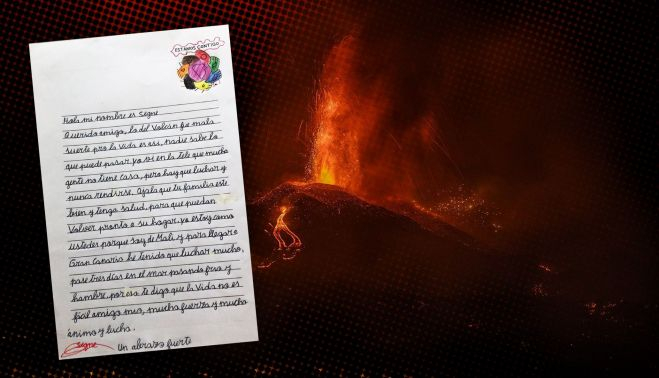 ESTAMOS CONTIGO
Hola mi nombre es Segne
Querido amigo, la del Volcán fue mala
suerte pro la Vida es asi, nadie sabe lo
que puede pasar. yo vi en la tele que mucha
gente no tiene casa, pero hay que luchar y
nunca rendirse. Ojala que tu familia este
bien y tenga salud, para que puedan
Volver pronto a su hogar. yo estoy como
ustedes porque soy de Mali y para llegar a
Gran Canaria he tenido que luchar mucho,
pase tres días en el mar pasando frio y
hambre, por eso te digo que la Vida no es
fácil amigo mio, mucha fuerza y mucho
ánimo y lucha.
Segne Un abrazo fuerte